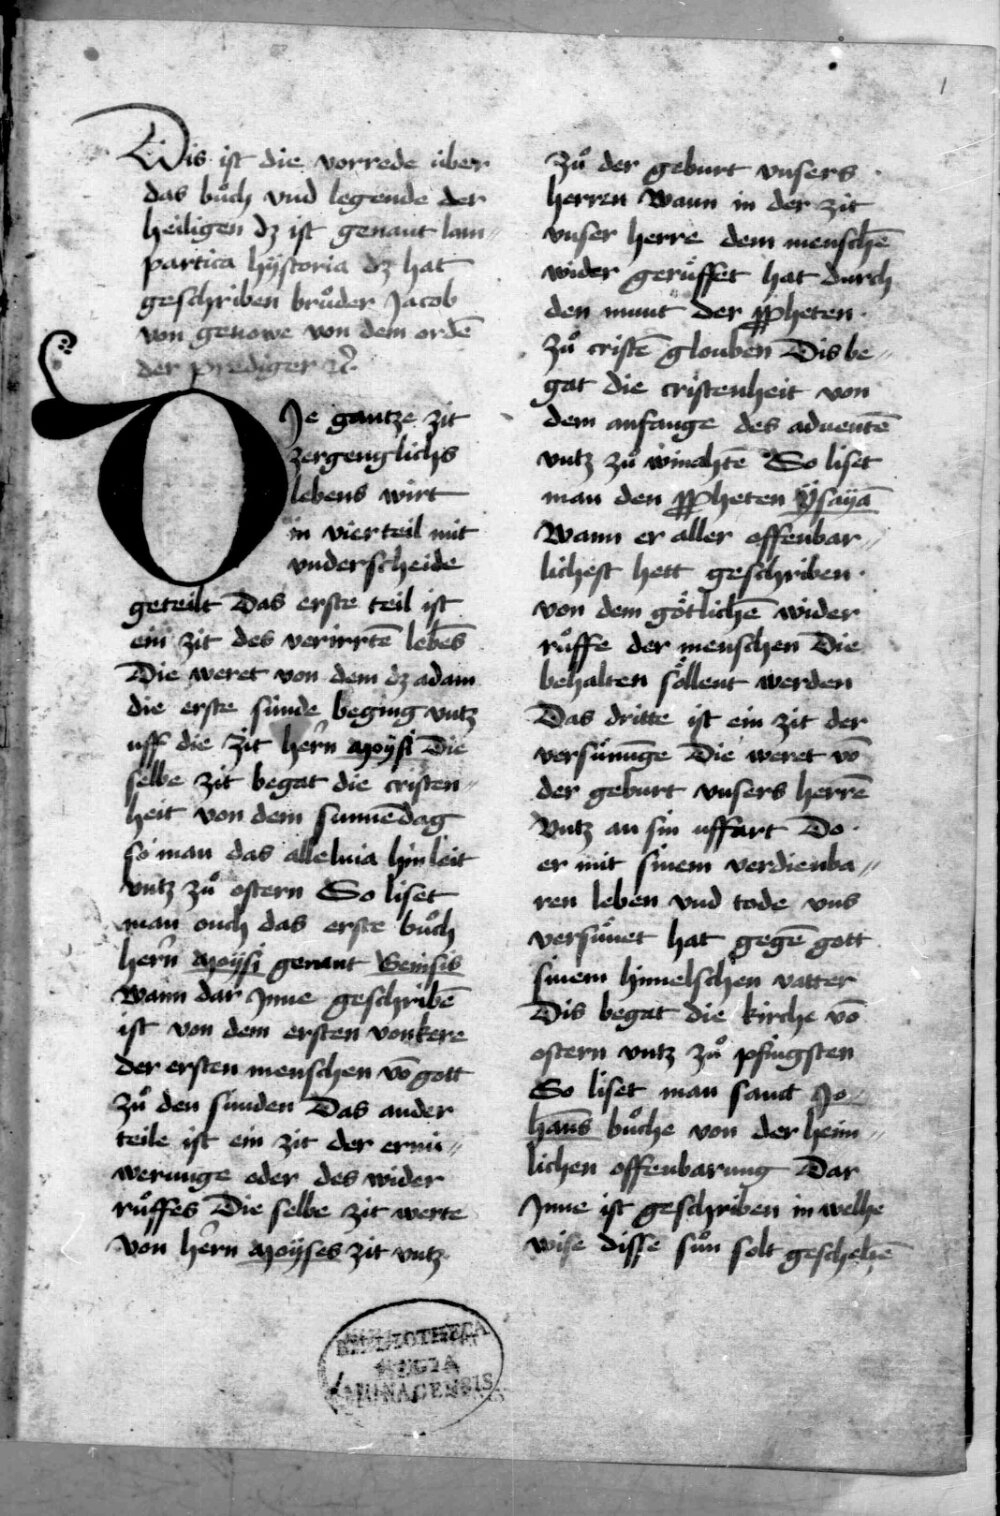 1
Dis ist die vorrede über
das bůch vnd legende der
heiligen dz ist genant lam„
partica hÿstoria dz hat
geschriben brůder Jacob
von genowe von dem ordē
der prediger ⁊c̄
DIe gantze zit
zergenglichs
lebens wirt
in vier teil mit
vnderscheide
geteilt Das erste teil ist
ein zit des verirrtē lebēs
Die weret von dem dz adam
die erste sünde beging vntz
uff die zit hern̄ Moÿsi Die
selbe zit begat die cristen„
heit von dem sunnēdag
so man das alleluia hin leit
vntz zů ostern So liset
man ouch das erste bůch
hern̄ Moÿsi genant Genisis
Wann dar Jnne geschribē
ist von dem ersten vonkere
der ersten menschen vō gott
zů den sünden Das ander
teile ist ein zit der ernü„
werunge oder des wider
růffes Die selbe zit werte
von hern̄ Moÿses zit vntz
zů der geburt vnsers
herren Wann in der zit
vnser herre dem menschē
wider gerůffet hat durch
den munt der ꝓpheten
zů cristē glouben Dis be„
gat die cristenheit von
dem anfange des aduentē
vntz zů winahtē So liset
man den ꝓpheten ÿsaÿā
Wann er aller offenbar„
lichest hett geschriben
von dem gӧtlichē wider
růffe der menschen Die
behalten sӧllent werden
Das dritte ist ein zit der
versůnūge Die weret vō
der geburt vnsers herrē
Vntz an sin uffart Do
er mit sinem verdienba„
ren leben vnd tode vns
versůnet hat gegē gott
sinem himelschen vatter
Dis begat die kirche vō
ostern vntz zů pfingsten
So liset man sanct Jo„
hāns bůche von der heim„
lichen offenbarung Dar
Jnne ist geschriben in welhe
wise disse sůn solt geschehē
BIBLIOTHECA
REGIA
MONACENSIS